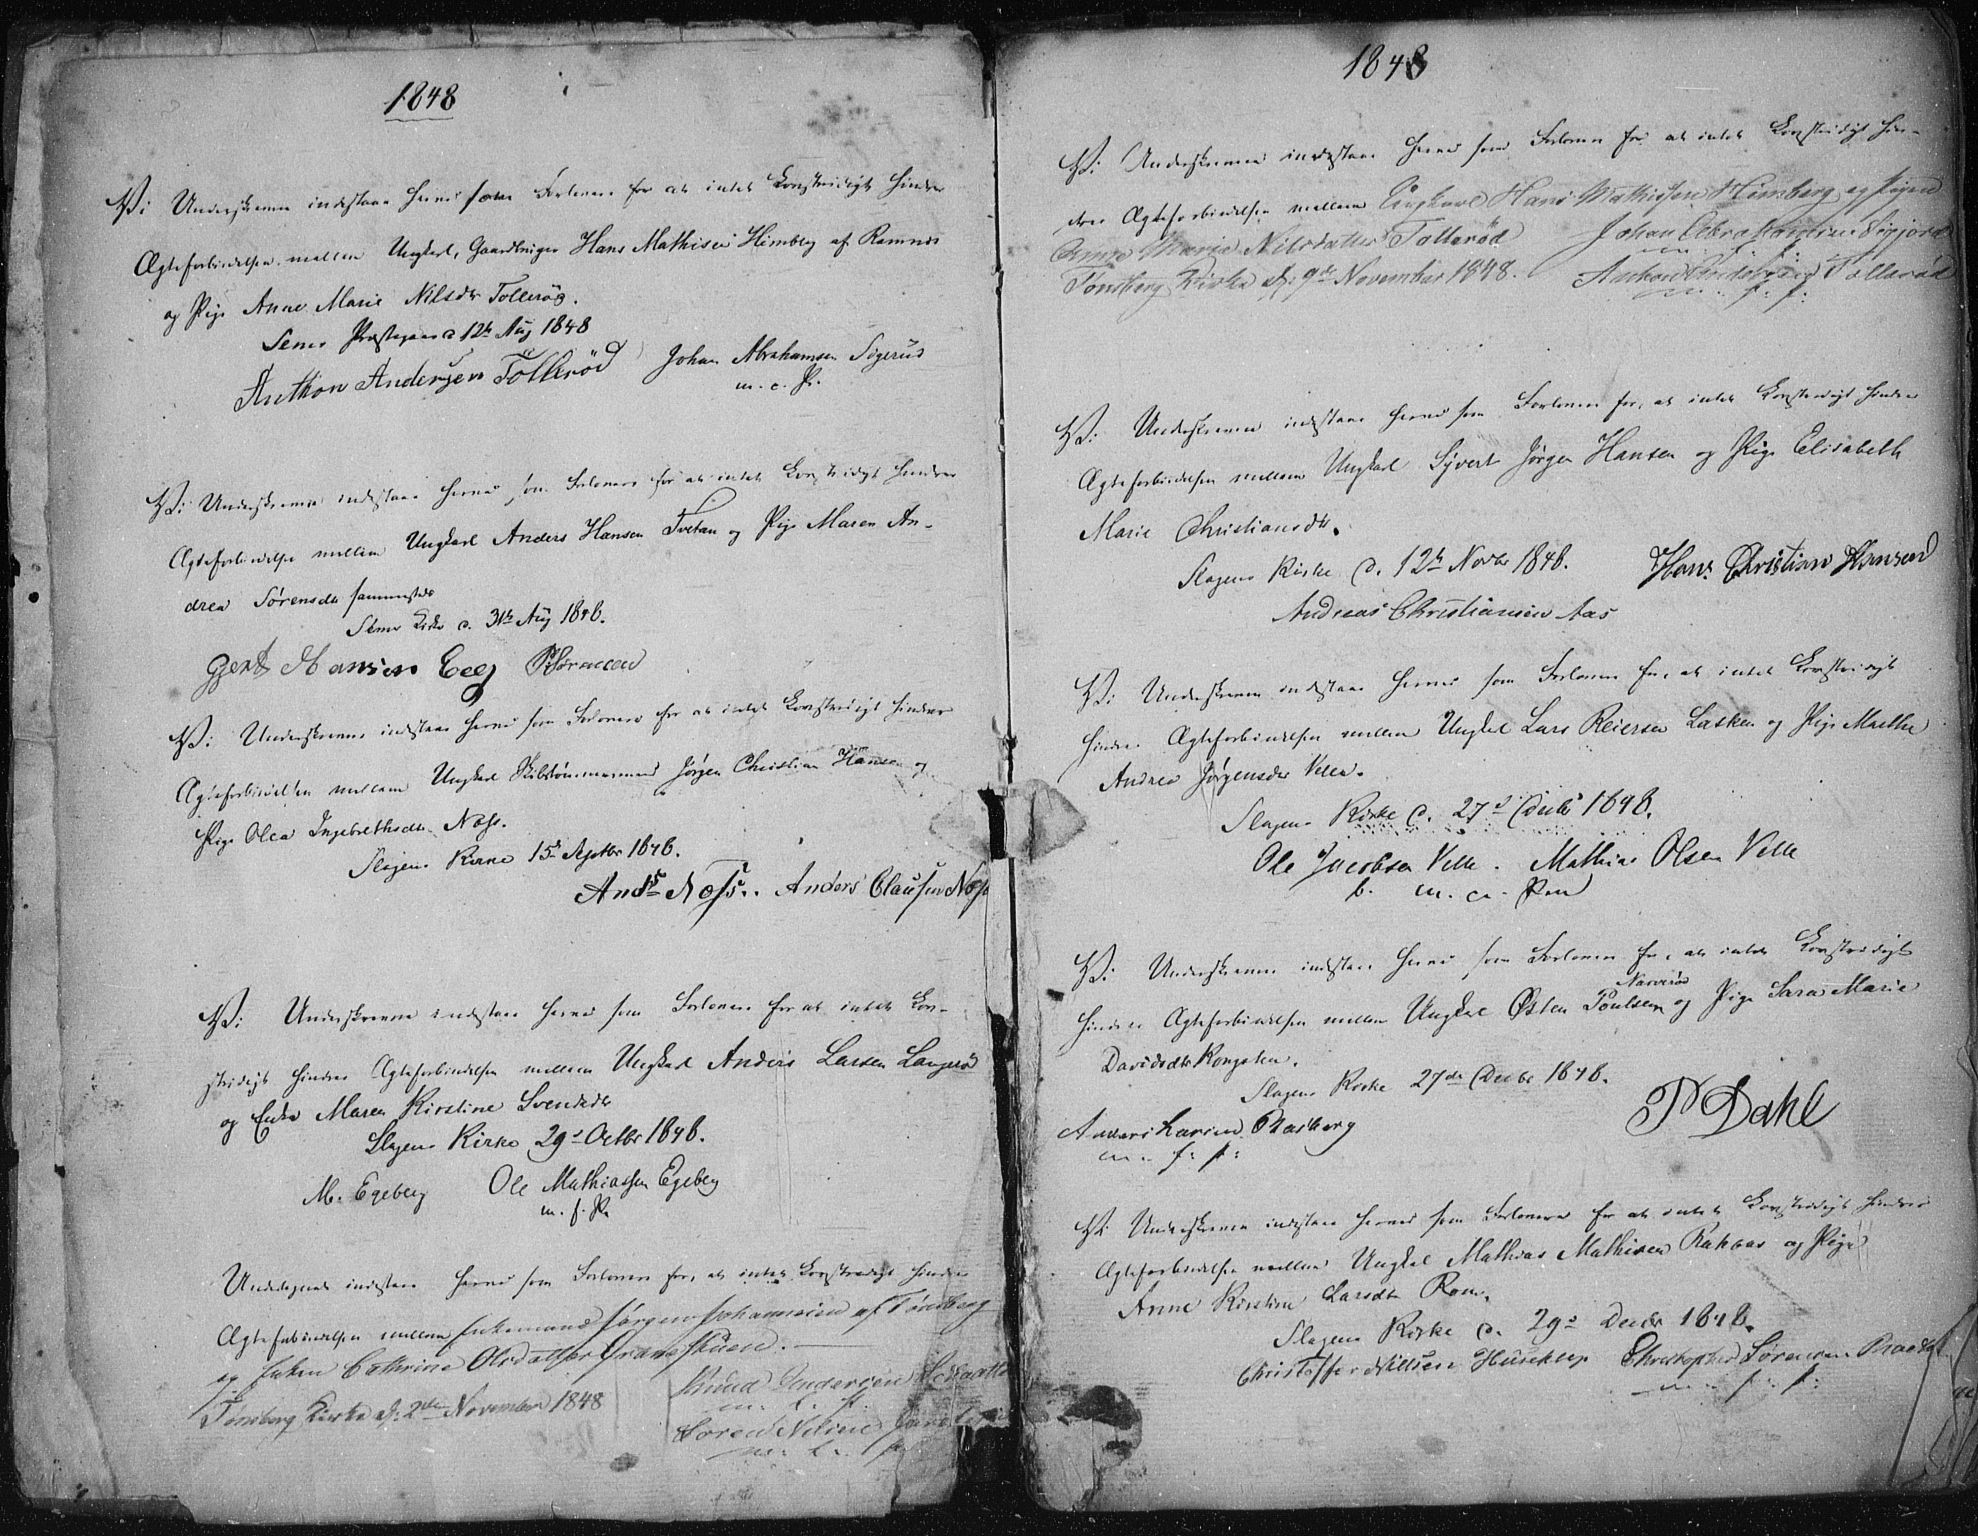 1848
Vi Underskrevne indestaae herved som Forlovere for at intet Lovstridigt hindrer
Ægteforbindelsen mellem Ungkarl, Gaardbruger Hans Mathisen Himberg af Ramnes
og Pige Anne Marie Nilsdr Tollerød.
Sems Præstegaard 12te Aug 1848
Anthon Andersen Tollerød Johan Abrahamsen
m. e. P.
Vi Underskrevne indestaae herved som Forlovere for at intet Lovstridigt hindrer
Ægteforbindelse mellem Ungkarl Anders Hansen Tvetan og Pige Maren An-
drea Sørensdr sammesteds
Sems Kirke d. 31te Aug 1848.
Gjert Hansen Eeg Sørensen
Vi Underskrevne indestaae herved som Forlovere for at intet Lovstridigt hindrer
Ægteforbindelsen mellem Ungkarl Skibstømmermand Jørgen Christian Hansen og
Pige Olea Ingebrethsdr Næss.
Slagens Kirke 15de Septbr 1848.
Ands Næss. Anders Clausen Næss
Vi Underskrevne indestaae herved som Forlovere for at intet Lov-
stridigt hindrer Ægteforbindelsen mellem Ungkarl Anders Larsen
og Enke Maren Kirstine Svendsdr
Slagens Kirke 29de Octbr 1848.
M. Egeberg Ole Mathiassen Egeberg
m. f. P.
Undertegnede indestaae herved som Forlovere for, at intet Lovstridigt hindrer
Ægteforbindelsen mellem Enkemand Jørgen Johannesen af Tønsberg
og Enken Cathrine Olsdatter
Tønsberg Kirke d: 2den November 1848
Knud Andersen
Søren Nilsen
1848
Vi Underskrevne indestaae herved som Forlovere for at intet Lovstridigt hin-
drer Ægteforbindelsen mellem Ungkarl Hans Mathisen Himberg og Pigen
Anne Marie Nilsdatter Tollerød
Tønsberg Kirke d: 9de November 1848.
Johan Abrahamsen
m. f. P.
Anthon Andersen Tollerød
m. f. P.
Vi Underskrevne indestaae herved som Forlovere for, at intet Lovstridigt hindrer
Ægteforbindelsen mellem Ungkarl Syvert Jørgen Hansen og Pige Elisabeth
Marie Christiansdr.
Slagens Kirke d. 12te Novbr 1848. Hans Christian Hansen
Andreas Christiansen Aas
Vi Underskrevne indestaae herved som Forlovere for, at intet Lovstridigt
hindrer Ægteforbindelsen mellem Ungkarl Lars Reiersen Lasken og Pige Marthe
Andrea Jørgensdr Velle.
Slagens Kirke d. 27de Decbr 1848.
Ole Jacobsen Velle. Mathias Olsen Velle
m. Pen
Vi Underskrevne indestaae herved som Forlovere for, at intet Lovstridigt
hindrer Ægteforbindelsen mellem Ungkarl Østen Poulsen Narverød og Pige Sara Marie
Davidsdr Rongsten.
Slagens Kirke 27de Decbr 1848.
P Dahl
Anders Larsen
m. f: P:
Vi Underskrevne indestaae herved som Forlovere for at intet Lovstridigt hindrer
Ægteforbindelsen mellem Ungkarl Mathias Mathisen Rakaas og Pige
Anne Kirstine Larsdr Rom.
Slagens Kirke d. 29de Decbr 1848.
Christoffer Nilsen Christopher Sørensen
m. f. P.